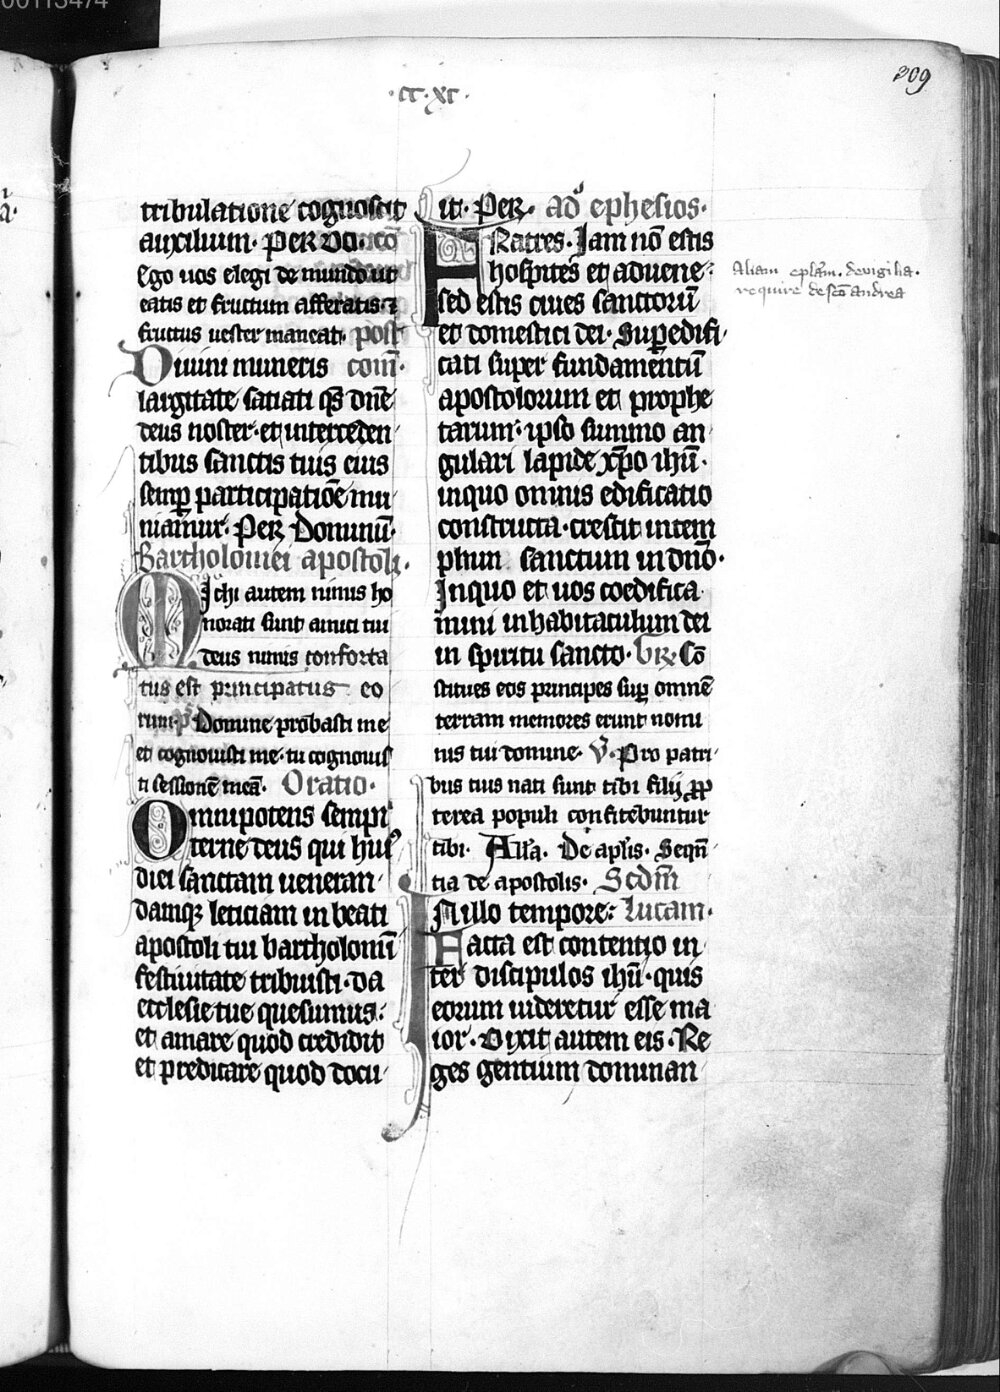 00113474
209
.cc.xc.
tribulatione cognoscat
auxilium. Per dn̄. cō
Ego uos elegi de mundo ut
eatis et fructum afferatis. ⁊
fructus uester maneat. post
Diuini muneris com̄.
largitate satiati qs̄ dn̄e
deus noster. et interceden
tibus sanctis tuis eius
semp̄ participatiōe mu
niamur. Per Dominū.
Bartholomei apostoli.
Michi autem nimis ho
norati sunt amici tui
deus nimis conforta
tus est principatus eo
rum. ps̄ Domine probasti me
et cognouisti me. tu cognouis
ti sessionē meā. Oratio.
Omnipotens sempi
terne deus qui huiꝰ
diei sanctam ueneran
damqȝ leticiam in beati
apostoli tui bartholomei
festiuitate tribuisti. da
ecclesie tue quesumus:
et amare quod credidit
et predicare quod docu
it. Per. ad ephesios.
Fratres. Iam nō estis
hospites et aduene:
sed estis ciues sanctorū
et domestici dei. Supedifi
cati super fundamentū
apostolorum et prophe
tarum. ipso summo an
gulari lapide xp̄o ihū.
inquo omnis edificatio
constructa. crescit intem
plum sanctum in dn̄o.
Inquo et uos coedifica
mini inhabitaculum dei
in spiritu sancto. Gr̄. Cō
stitues eos principes sup̄ omnē
terram memores erunt nomi
nis tui domine. V̄. Pro patri
bus tuis nati sunt tibi filij ꝓp
terea populi confitebuntur
tibi. All̄a. De apl̄is. Seqn̄
tia de apostolis. Scdm̄
In illo tempore: lucam.
Facta est contentio in
ter discipulos ihū. quis
eorum uideretur esse ma
ior. Dixit autem eis. Re
ges gentium dominan
Aliam epl̄am. de vigilia.
require de scō andrea